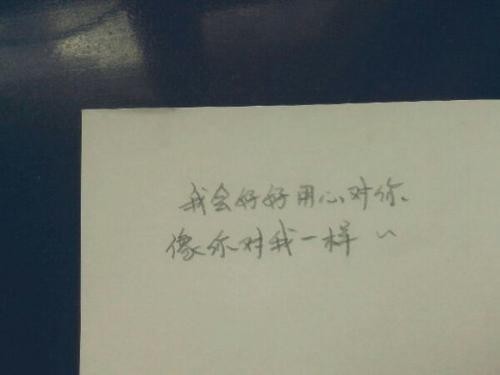 我会好好用心对你、
像你对我一样~